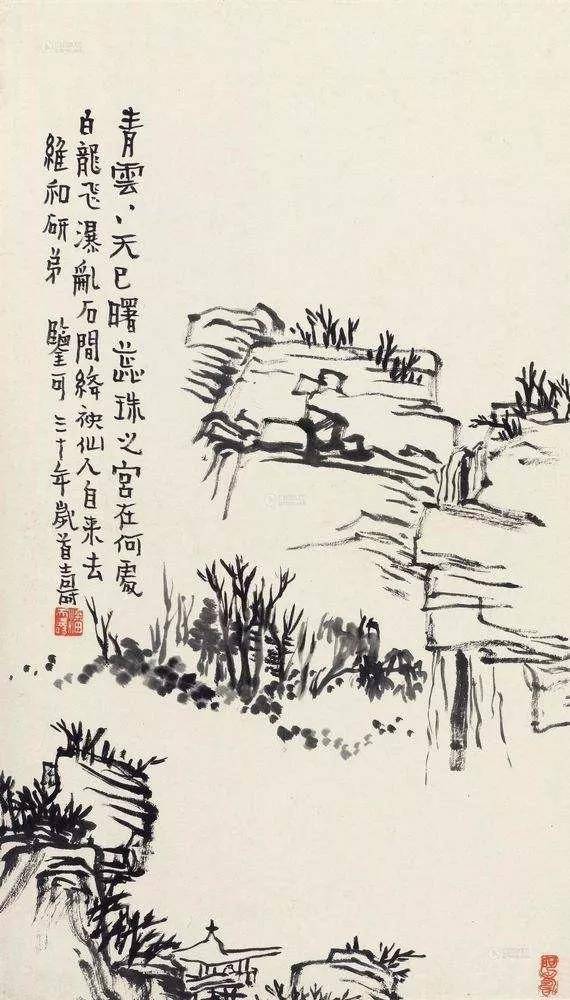 青雲〻天已曙蕊珠之宮在何處
白龍飛瀑亂石間絳袂仙人自来去
維和研弟 鑒可 三十年歲首壽